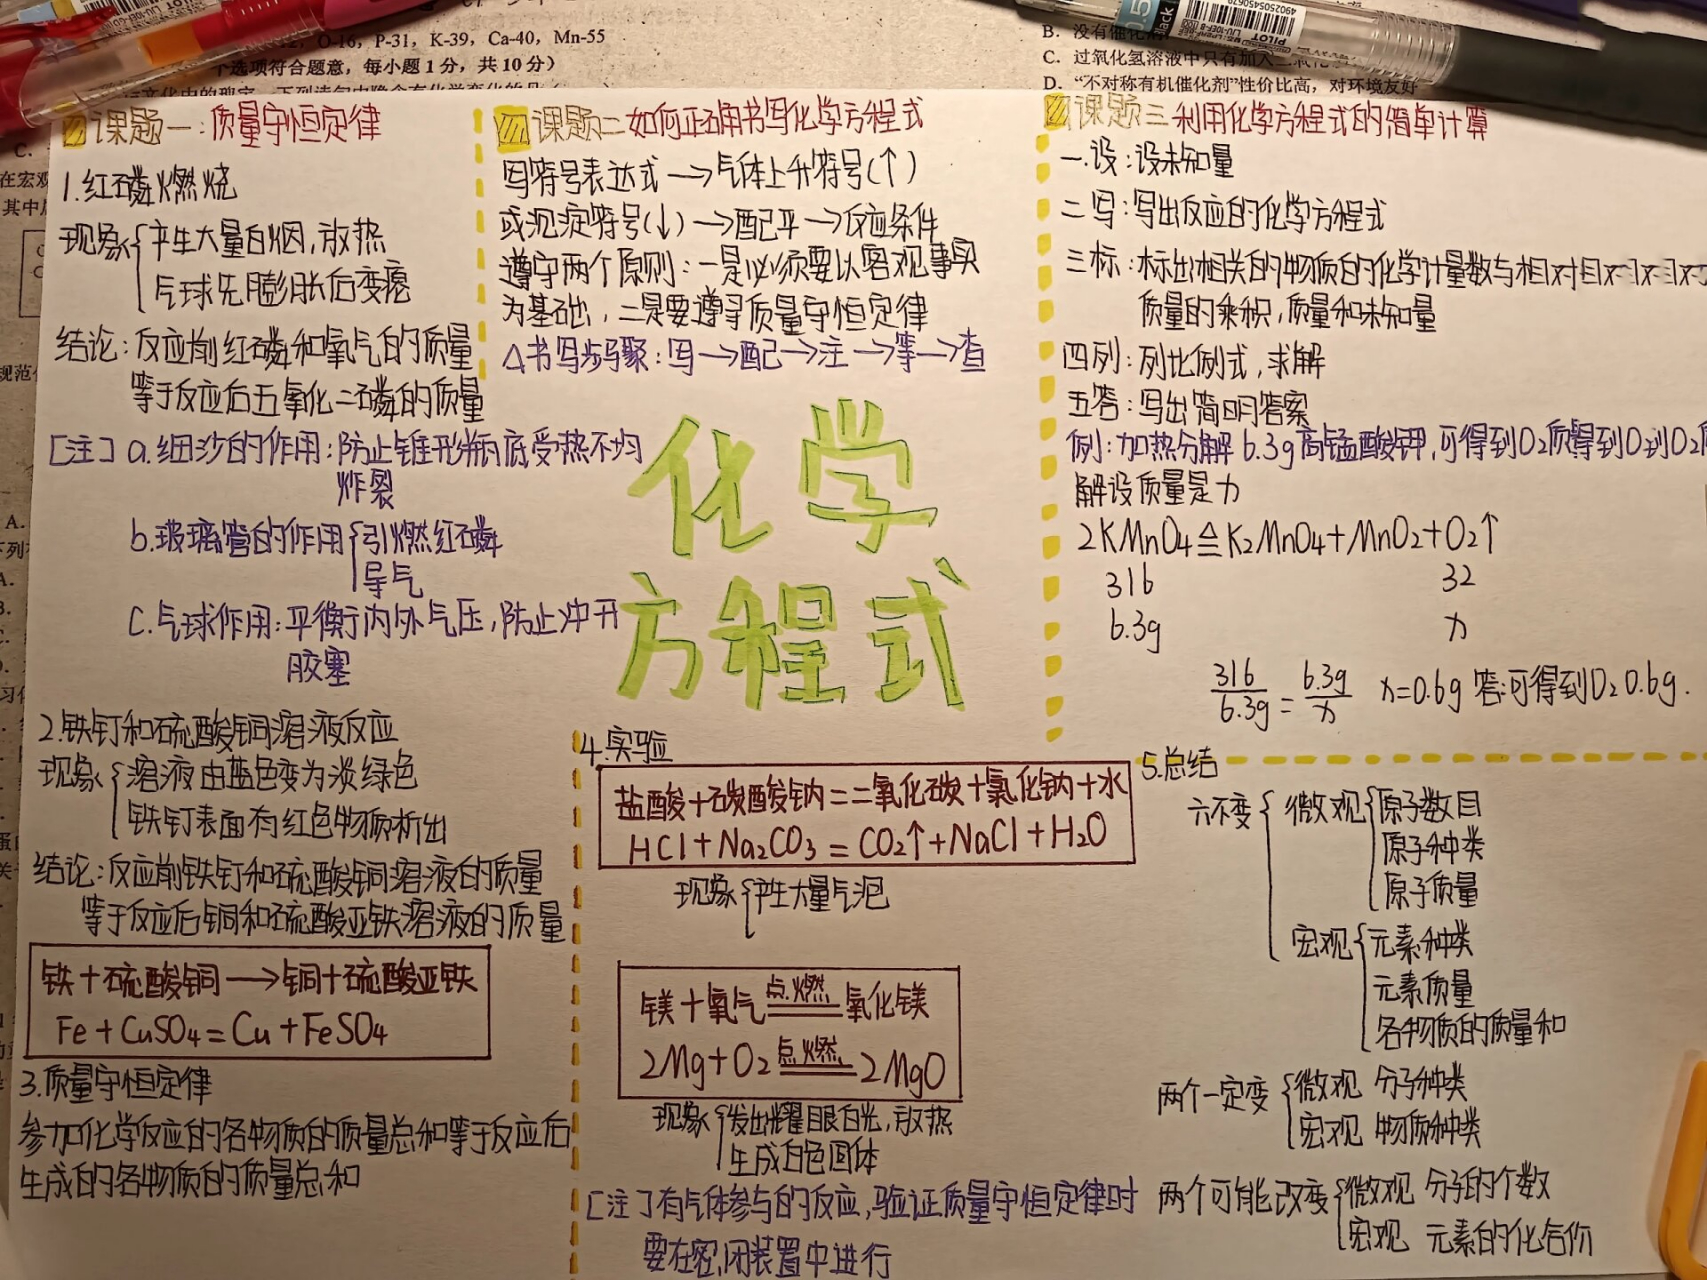 O-16, P-31, K-39, Ca-40, Mn-55
个选项符合题意，每小题1分，共10分）
C. 过氧化氢溶液中只有加入二氧化
D. “不对称有机催化剂”性价比高，对环境友好
课题一:质量守恒定律
1.红磷燃烧
现象 产生大量白烟,放热
气球先膨胀后变瘪
结论:反应前红磷和氧气的质量
等于反应后五氧化二磷的质量
[注] a.细沙的作用:防止锥形瓶底受热不均
炸裂
b.玻璃管的作用 引燃红磷
导气
C.气球作用:平衡内外气压,防止冲开
胶塞
2.铁钉和硫酸铜溶液反应
现象 溶液由蓝色变为淡绿色
铁钉表面有红色物质析出
结论:反应前铁钉和硫酸铜溶液的质量
等于反应后铜和硫酸亚铁溶液的质量
铁+硫酸铜→铜+硫酸亚铁
Fe+CuSO4=Cu+FeSO4
3.质量守恒定律
参加化学反应的各物质的质量总和等于反应后
生成的各物质的质量总和
课题二 如何正确书写化学方程式
写符号表达式→气体上升符号(↑)
或沉淀符号(↓)→配平→反应条件
遵守两个原则:一是必须要以客观事实
为基础,二是要遵守质量守恒定律
△书写步骤:写→配→注→等→查
化学
方程式
4.实验
盐酸+碳酸钠==二氧化碳+氯化钠+水
HCl+Na2CO3=CO2↑+NaCl+H2O
现象 产生大量气泡
镁+氧气 点燃 氧化镁
2Mg+O2 点燃 2MgO
现象 发出耀眼白光,放热
生成白色固体
[注]有气体参与的反应,验证质量守恒定律时
要在密闭装置中进行
课题三 利用化学方程式的简单计算
一.设:设未知量
二写:写出反应的化学方程式
三标:标出相关的物质的化学计量数与相对
质量的乘积,质量和未知量
四列:列比例式,求解
五答:写出简明答案
例:加热分解6.3g高锰酸钾,可得到O2质
解设质量是x
2KMnO4≙K2MnO4+MnO2+O2↑
316 32
6.3g x
316/6.3g=6.3g/x x=0.6g 答:可得到O2 0.6g.
5.总结
六不变 微观 原子数目
原子种类
原子质量
宏观 元素种类
元素质量
各物质的质量和
两个一定变 微观 分子种类
宏观 物质种类
两个可能改变 微观 分子的个数
宏观 元素的化合价